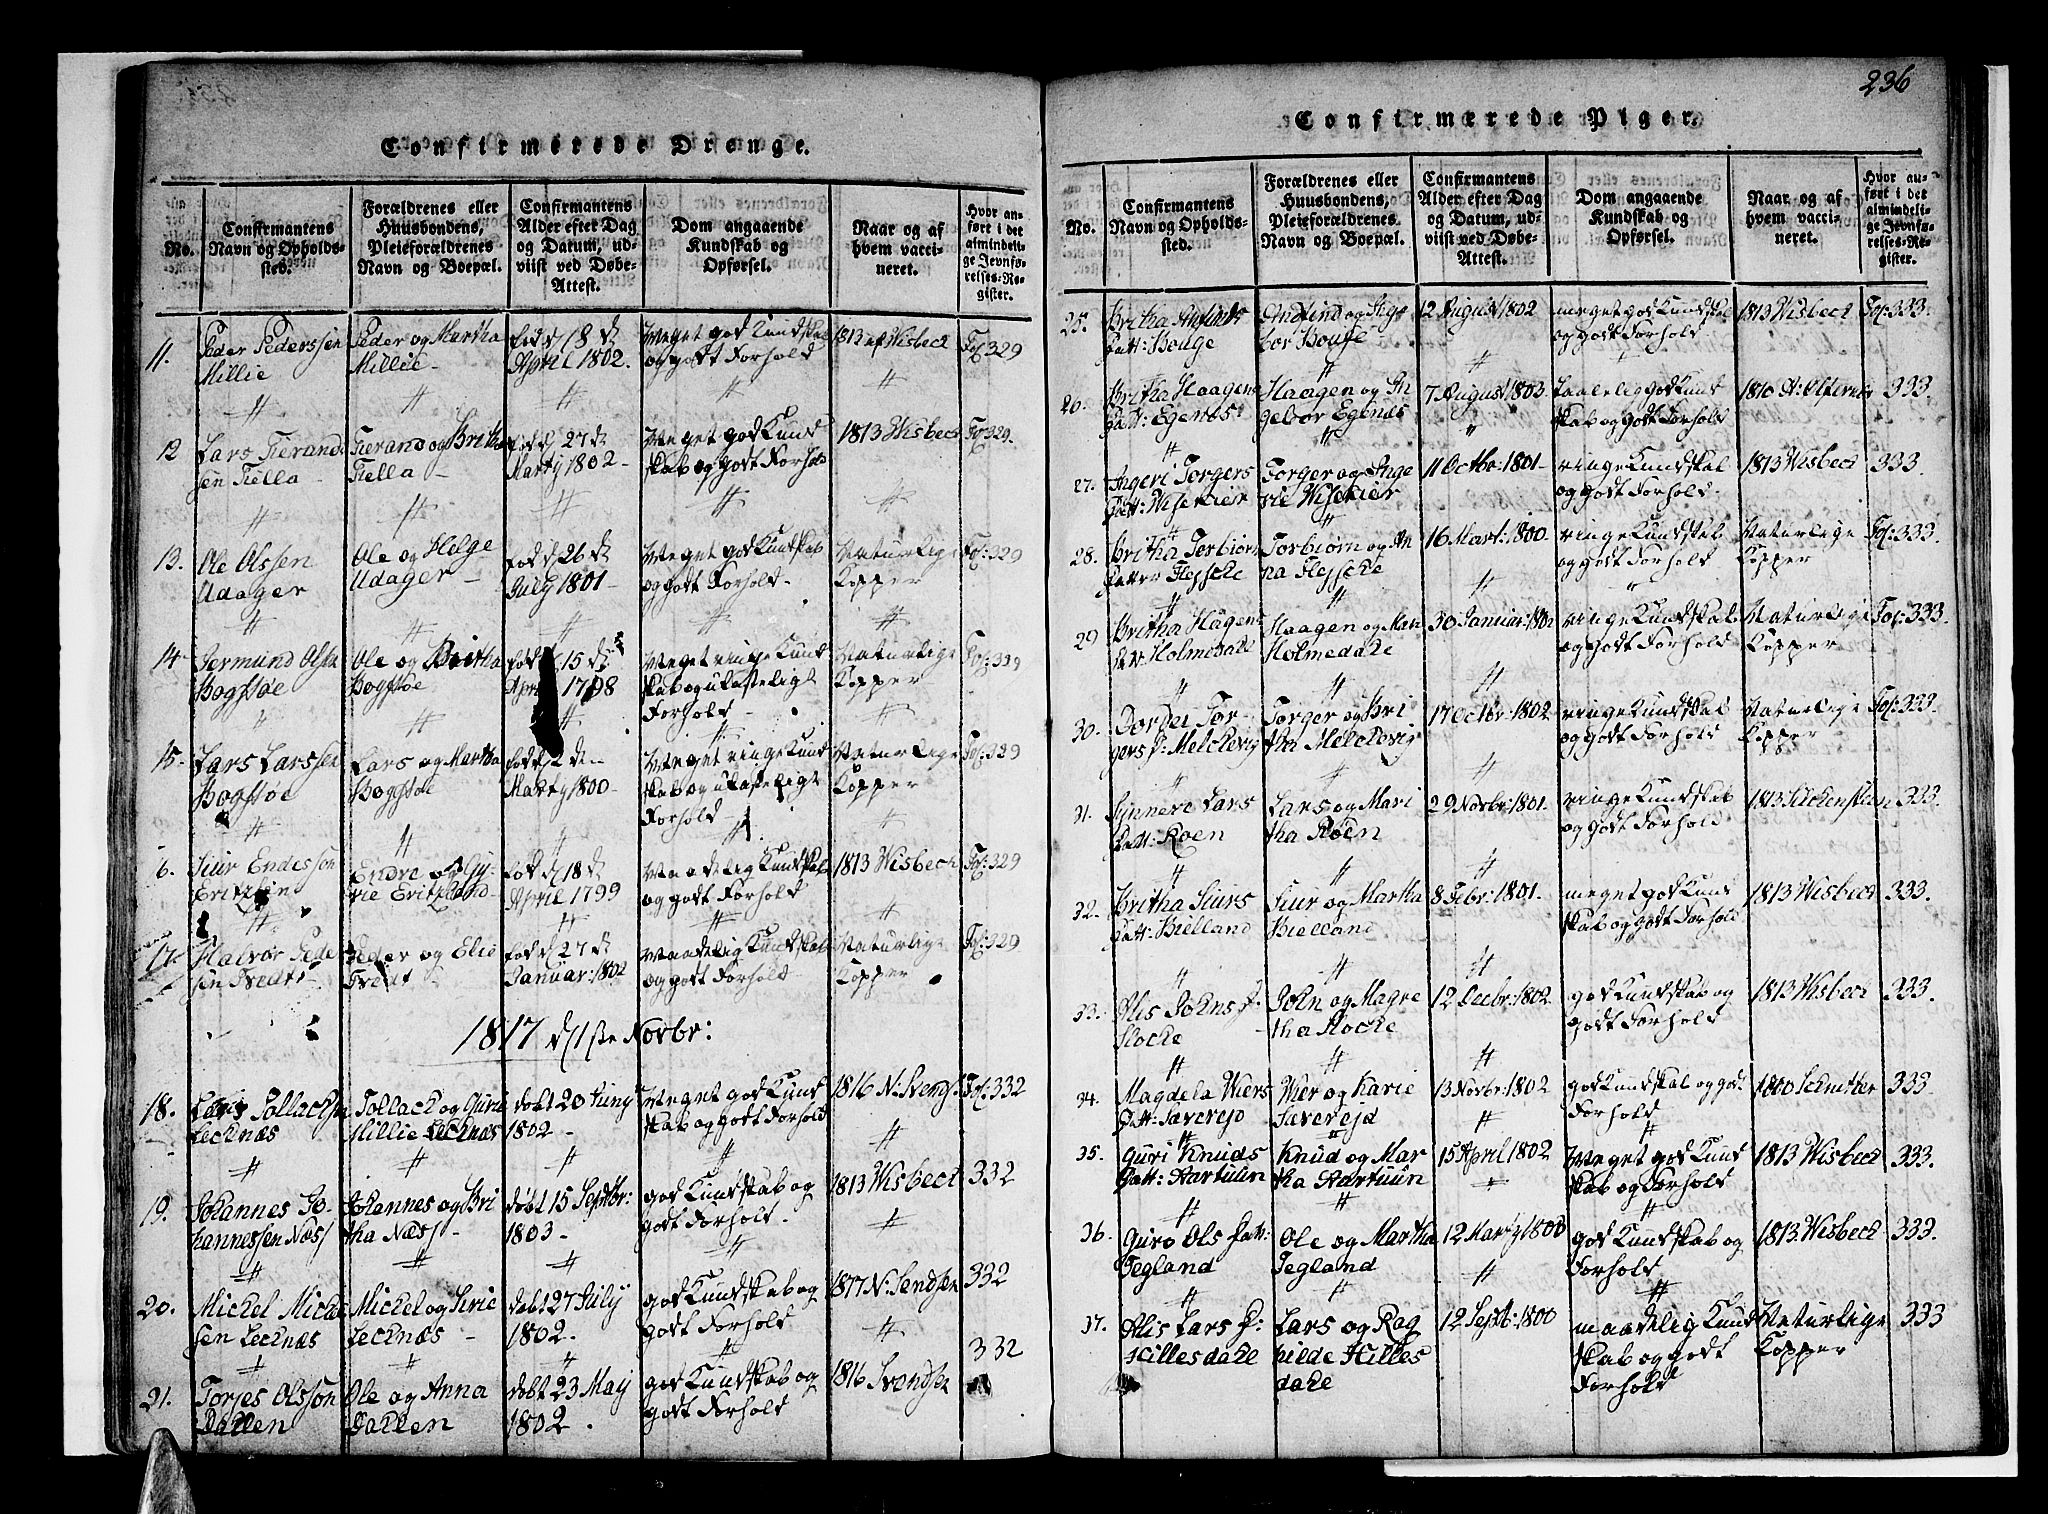 Confirmerede Drenge.
No.
Confirmantens
Navn og Opholds-
sted.
Forældrenes eller
Huusbondens,
Pleieforældrenes
Navn og Boepæl.
Confirmantens
Alder efter Dag
og Datum, ud-
viist ved Døbe-
Attest.
Dom angaaende
Kundskab og
Opførsel.
Naar og af
hvem vacci-
neret.
Hvor an-
ført i det
almindeli-
ge Jevnfø-
relses-Re-
gister.
11.
Peder Pederssen
Millie
Peder og Martha
Millie
født 18 d
April 1802.
Meget god Kundskab
og godt Forhold
1813 af Wisbech
Fol: 329
12
Lars Tierand
sen Tiella
Tierand og Britha
Tiella
født d 27 d
Marty 1802
Meget god Kund
skab og godt Forhold
1813 Wisbech
Fol: 329.
13.
Ole Olssen
Udager
Ole og Helge
Udager
født d 26 d
July 1801
Meget god Kundskab
og godt Forhold
Naturlige
Kopper
Fol: 329
14
Germund Olss
Bogstøe
Ole og Britha
Bogstøe
født d 15 d
April 1798
Meget ringe Kund
skab og ulasteligt
Forhold
Naturlige
Kopper
Fol: 329
15
Lars Larssen
Bogstoe
Lars og Martha
Bogstøe
født d 2 den
Marty 1800
Meget ringe Kund
skab og ulasteligt
Forhold
Naturlige
Kopper
Fol: 329
6.
Siur Endessøn
Endre og Gy-
rie Eritzland
fød d 18 d
April 1799
Maadelig Kundskab
og godt Forhold
1813 Wisbech
Fol: 329
17
Halvor Pede
sen Tvedt
Peder og Elie
Tvedt
fød d 27 d
Januar: 1802
Maadelig Kundskab
og godt Forhold
Naturlige
Kopper
Fol: 329
1817 d 1ste Novbr:
18.
Tollacksen
Lecknæs
Tollack og Guri
Millie Lecknæs
døbt 20 Juny
1802
Meget god Kund
skab og godt Forhold
1816 N: Svends:
Fol: 332
19.
Johannes Jo-
hannessen Næss
Johannes og Bri
tha Næss
døbt 15 Septbr:
1803
god Kundskab og
godt Forhold
1813 Wisbech
332
20.
Mickel Mickel
sen Lecknæs
Mickel og Sirie
Lecknæs
døbt 27 July
1802.
god Kundskab og
godt Forhold
332
21.
Torjes Olsson
Dahlen
Ole og Anna
Dahlen
døbt 23 May
1802.
god Kundskab og
godt Forhold
1816 Svendsen
332
236
Confirmerede Piger.
No.
Confirmantens
Navn og Opholds-
sted.
Forældrenes eller
Huusbondens,
Pleieforældrenes
Navn og Boepæl.
Confirmantens
Alder efter Dag
og Datum, ud-
viist ved Døbe-
Attest.
Dom angaaende
Kundskab og
Opførsel.
Naar og af
hvem vacci-
neret.
Hvor an-
ført i det
almindeli-
ge Jevnfø-
relses-Re-
gister.
25.
Britha Anfinds
Datt: Houge
Endfind og Inge
bor Houge
12 August 1802
meget god Kundskab
og godt Forhold
1813 Wisbech
Fol: 333.
26.
Britha Haagens
Datt: Egenæs
Haagen og In
gebor Egenæs
7 August 1803
taalelig god Kund
skab og godt Forhold
1810
333.
27.
Ingeri Torgers
Datt: Wistvier
Torger og Inge
rie Wistvier
11 Octbr: 1801
ringe Kundskab
og godt Forhold
1813 Wisbech
333.
28.
Britha Torbiørn
Datter Flessche
Torbiørn og An
na Flessche
16 Mart: 1800.
ringe Kundskab
og godt Forhold
Naturlige
Kopper
Fol: 333.
29
Britha Hagens
Holmedahl
Haagen og Mari
Holmedahl
30 Januar: 1802
ringe Kundskab
og godt Forhold
Naturlige
Kopper
Fol: 333.
30.
Dordei Tor-
gers D: Melchevig
Torger og Bri
tha Melchevig
17 Octbr: 1802
ringe Kundskab
og godt Forhold
Naturlige
Kopper
Fol: 333
31.
Synnere Lars
Datt: Røen
Lars og Mari
tha Røen
29 Novbr: 1801.
ringe Kundskab
og godt Forhold
333.
32.
Britha Siurs
Datt: Bielland
Siur og Martha
Bielland
8 Febr: 1801.
meget god Kund
skab og godt Forhold
1813 Wisbech
333.
33.
Alis Johns D
Flocke
John og Magre
tha Flocke
12 Decbr: 1802.
god Kundskab og
godt Forhold
1813 Wisbech
333.
34.
Magdela Wiers
Datt: Saverejd
Wier og Karie
Saverejd
13 Novbr: 1802
god Kundskab og godt
Forhold
333
35.
Guri Knuds
Datt: Aartuun
Knud og Mar
tha Aartuun
15 April 1802
Meget god Kund
skab og Forhold
1813 Wisbech
333.
36.
Guro Ols Dat:
Tegland
Ole og Martha
Tegland
12 Marty 1800
god Kundskab og
Forhold
1813 Wisbech
333.
37.
Alis Lars D:
Hillesdahl
Lars og Rag
hilde Hilles
dahl
12 Septb: 1800
maadelig Kund
skab og godt
Forhold
Naturlige
Kopper
333